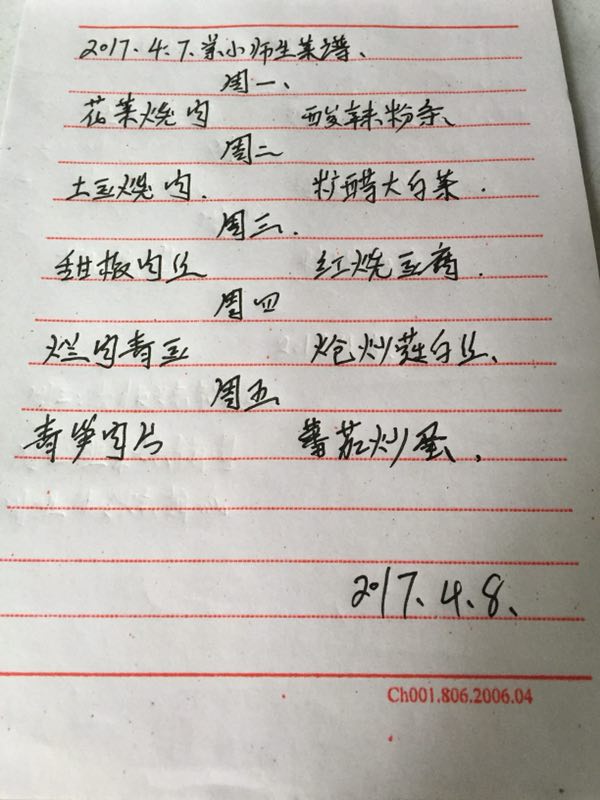 2017.4.7.学小师生菜谱、
周一、
花菜烧肉 酸辣粉条、
周二
土豆烧肉. 炝醋大白菜.
周三.
甜椒肉丝 红烧豆腐.
周四
烂肉青豆 炝炒莲白丝、
周五
青笋肉片 蕃茄炒蛋、
2017、4、8、
Ch001.806.2006.04